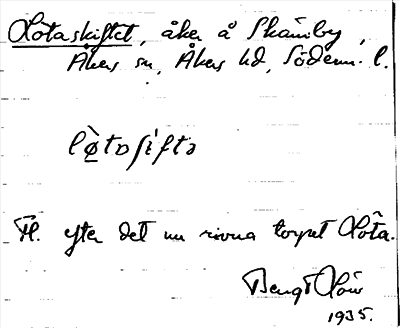 Löta skiftet, åker å Skämby,
Åkers sn, Åkers hd, Söderm. l.
lø̀taʃiftə
efter det nu rivna torpet Löta.
Bengt
1935.